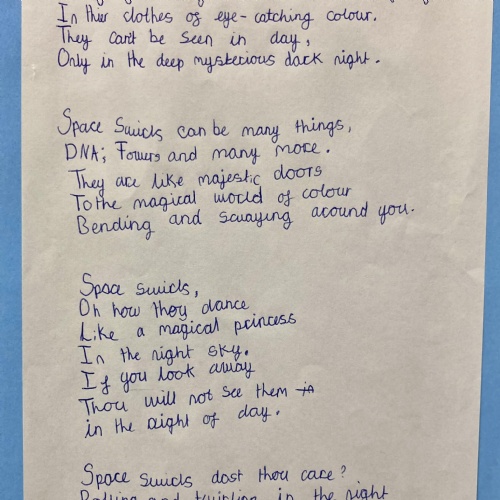 In thier clothes of eye-catching colour.
They can't be seen in day,
Only in the deep mysterious dark night.
Space Swirls can be many things,
DNA; Fowers and many more.
They are like majestic doors
To the magical world of colour
Bending and swaying around you.
Space swirls,
Oh how they dance
Like a magical princess
In the night sky.
If you look away
Thou will not see them
in the of day.
Space swirls dost thou care?
and twirling in the night